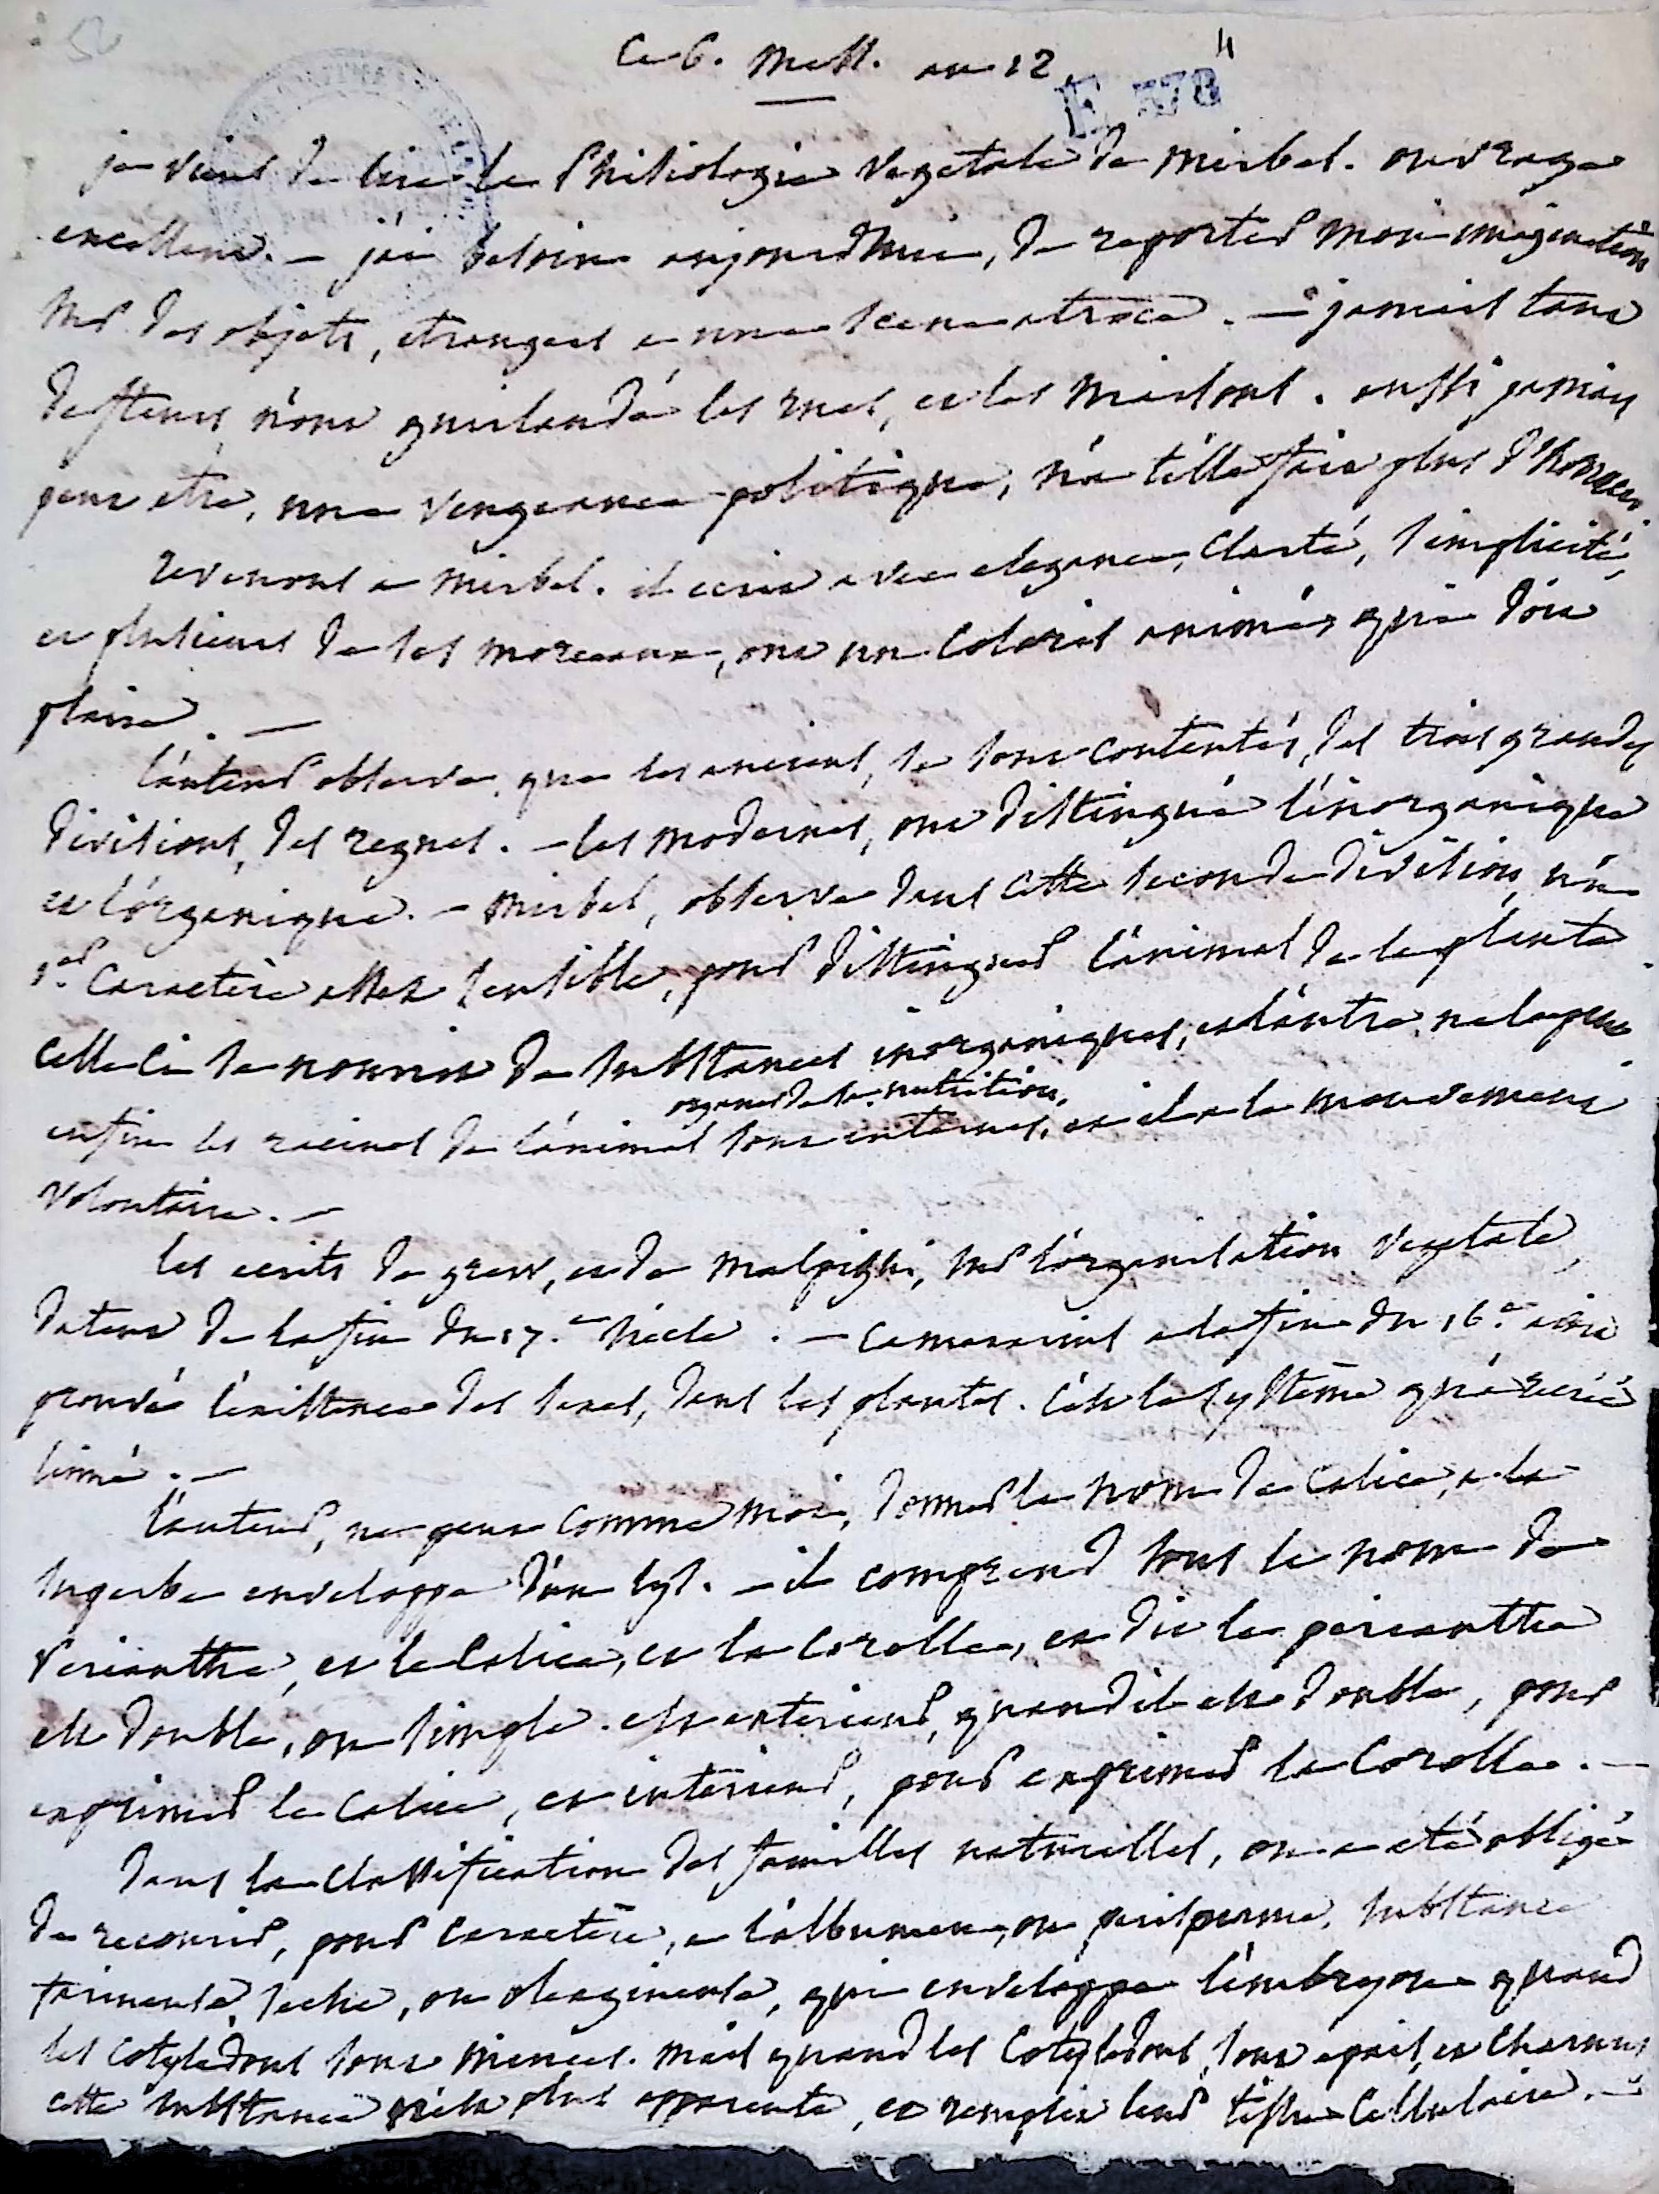 Ce 6. Mess. an 12
E 378
4
52
je viens de lire la Phisiologie vegetale de mirbel. ouvrage
excellent. — j'ai besoin aujourdhui, de reporter mon imagination
sur des objets, etrangers a une scene atroce. — jamais tant
de fleurs, n'ont guirlandé les rues, et les maisons. aussi jamais
peut etre, une vengeance politique, n'a t'elle fait plus d'horreur.
revenons a mirbel. il ecrit avec elegance, clarté, simplicité,
et plusieurs de ses morceaux, ont un coloris animé, qui doit
plaire. —
l'auteur observe, que les anciens, se sont contentés, des trois grandes
divisions, des regnes. — les modernes, ont distingué l'inorganique
et l'organique. — mirbel, observe dans cette seconde division, un
1er. caractère assez sensible, pour distinguer l'animal de la plante.
celle ci se nourrit de substances inorganiques, et l'autre ne le peut.
organes de la nutrition,
enfin les racines de l'animal sont internes, et il a le mouvement
volontaire. —
les ecrits de grew, et de malpighi, sur l'organisation vegetale,
datent de la fin du 17.e siècle. — camerarius a la fin du 16.e avoit
prouvé l'existence des sexes, dans les plantes. c'est le systême qu'a recréé
linné. —
l'auteur, ne peut comme moi, donner le nom de calice, a la
superbe enveloppe d'un lys. — il comprend sous le nom de
Perianthe, et le calice, et la corolle, et dit le perianthe
est double, ou simple. est exterieur, quand il est double, pour
exprimer le calice, et intérieur, pour exprimer la corolle. —
dans la classification des familles naturelles, on a été obligé
de recourir, pour caractère, a l'albumen, ou perisperme, substance
farineuse, seche, ou oleagineuse, qui enveloppe l'embryon quand
les cotylédons sont minces. mais quand les cotylédons, sont epais, et charnus
cette substance n'est plus apparente, et remplit leur tissu cellulaire. —